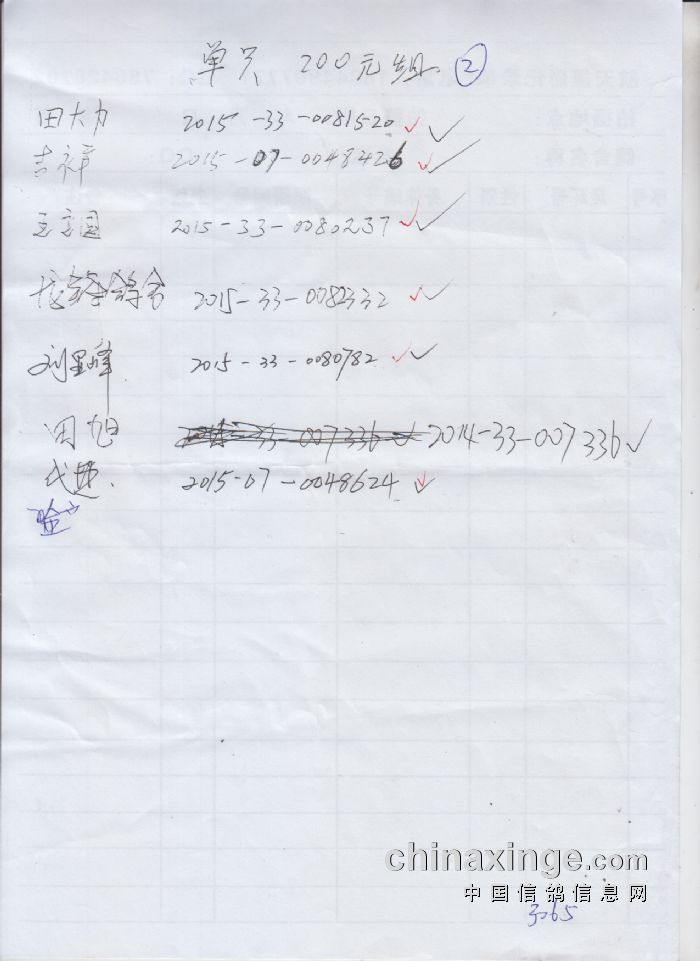 单只 200元组 ②
田大力 2015-33-0081520 ✓✓
吉祥 2015-07-0048426 ✓✓
2015-33-0080237 ✓✓
鸽舍 2015-33-0082332 ✓✓
刘星峰 2015-33-0080782 ✓✓
田旭 2014-33-007336 ✓
代 2015-07-0048624 ✓
chinaxinge.com
中国信鸽信息网
3065